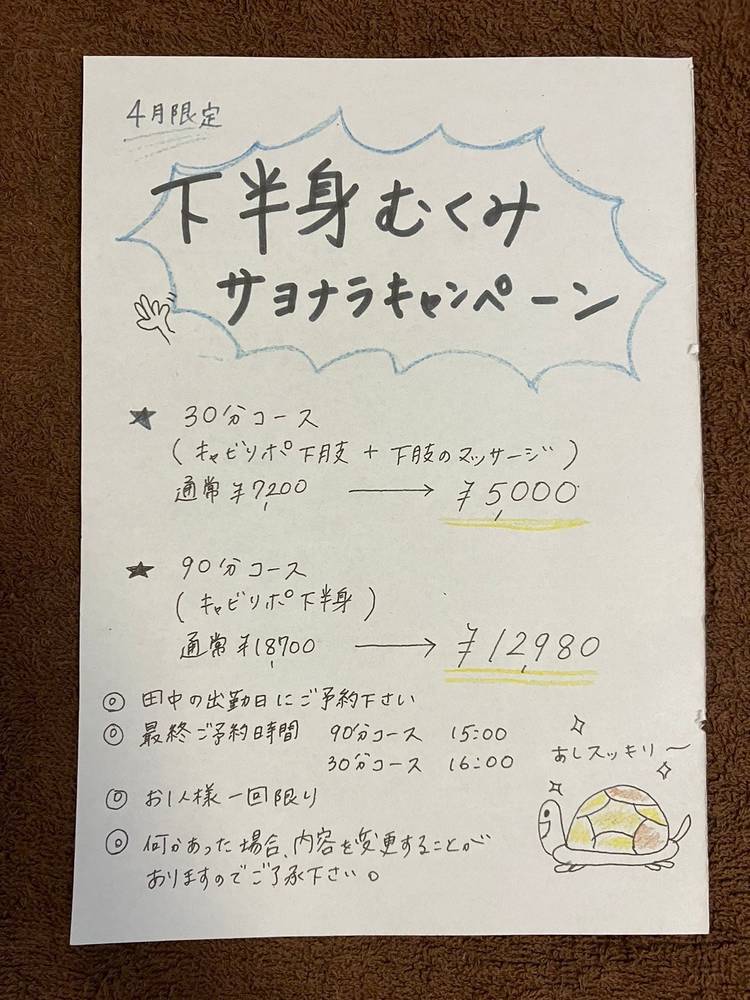 4月限定
下半身むくみ
サヨナラキャンペーン
★ 30分コース
(キャビリポ下肢 + 下肢のマッサージ)
通常 ¥7,200 → ¥5,000
★ 90分コース
(キャビリポ下半身)
通常 ¥18,700 → ¥12,980
◎ 田中の出勤日にご予約下さい
◎ 最終ご予約時間 90分コース 15:00
30分コース 16:00
あしスッキリ〜
◎ お1人様一回限り
◎ 何かあった場合、内容を変更することが
おりますのでご了承下さい。